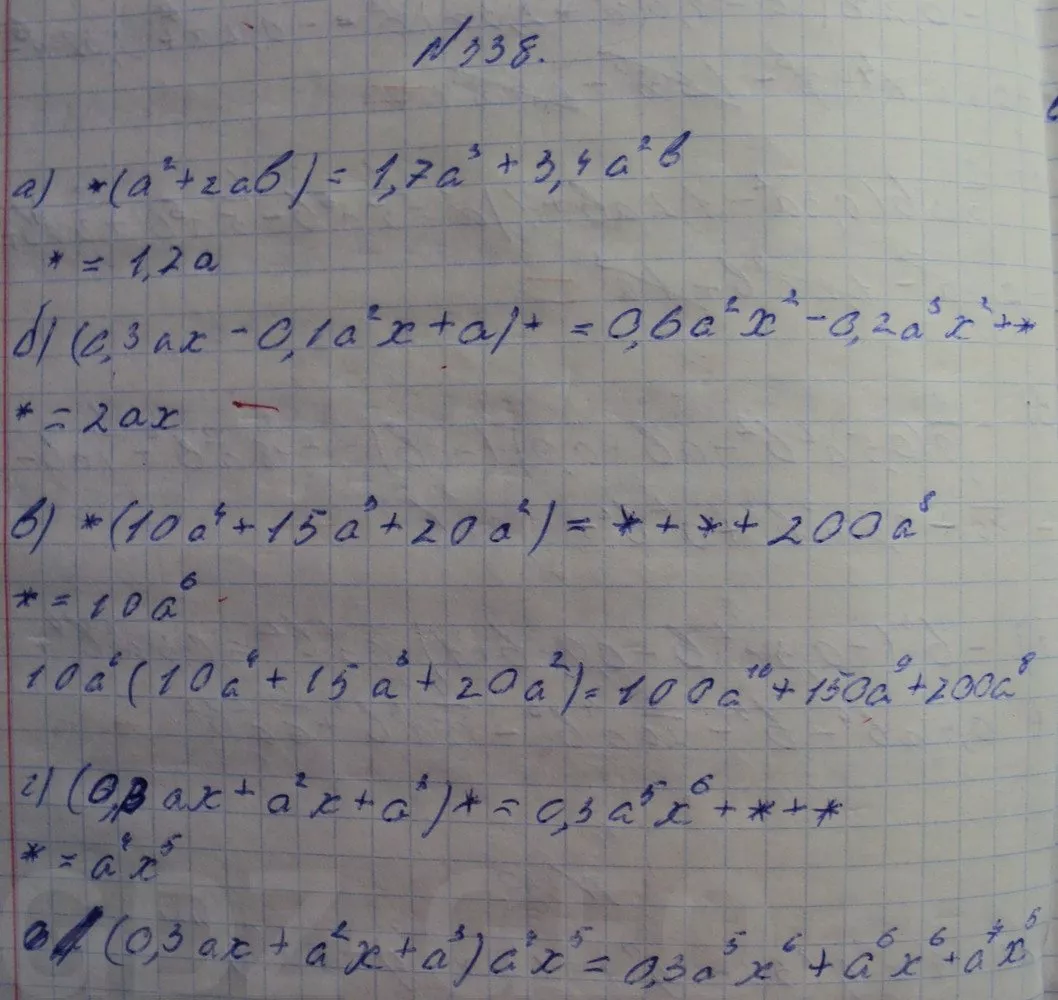 №338.
а) *(a²+2ab)=1,7a³+3,4a²b
*=1,2a
б) (0,3ax-0,1a²x+a)*=0,6a²x²-0,2a³x²+*
*=2ax
в) *(10a⁴+15a³+20a²)=*+*+200a⁸
*=10a⁶
10a⁶(10a⁴+15a³+20a²)=100a¹⁰+150a⁹+200a⁸
г) (0,3ax+a²x+a³)*=0,3a⁵x⁶+*+*
*=a⁴x⁵
(0,3ax+a²x+a³)a⁴x⁵=0,3a⁵x⁶+a⁶x⁶+a⁷x⁵